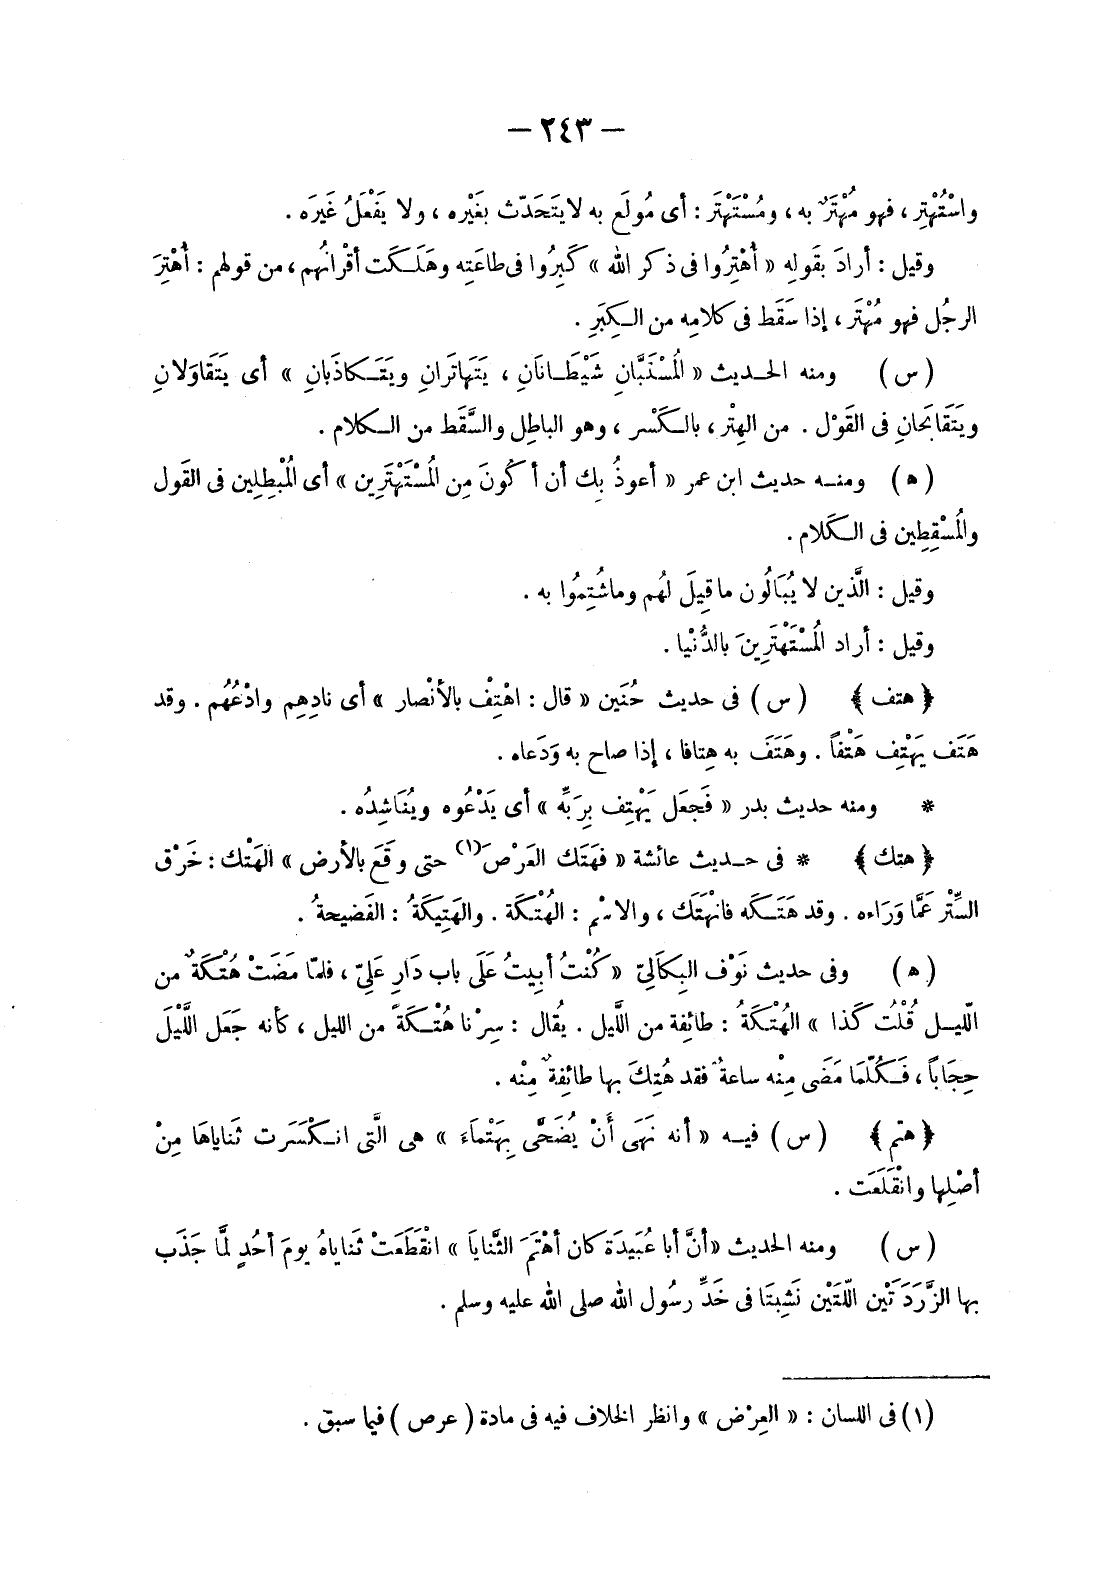 — ٢٤٣ —
واسْتُهْتِر ، فهو مُهْتَرٌ به ، ومُسْتَهْتَر : أى مُولَع به لا يَتَحَدّث بغَيْره ، ولا يَفْعَلُ غَيرَه .
وقيل : أرادَ بقَولِه « أُهْتِرُوا فى ذكر اللّه » كَبِرُوا فى طاعَتِه وهَلَكَت أقْرانُهم ، من قولهم : أُهْتِرَ
الرجُل فهو مُهْتَر ، إذا سَقَط فى كلامِه من الكِبَرِ .
( س ) ومنه الحديث « الْمُسْتَبَّانِ شَيْطَانَانِ ، يَتَهاتَرانِ ويَتَكاذَبانِ » أى يَتَقَاوَلانِ
ويَتَقَابَحَانِ فى القَوْل . من الهِتْر ، بالكَسْر ، وهو الباطِل والسَّقَط من الكلام .
( ه ) ومنه حديث ابن عمر « أعوذُ بِك أن أكُونَ مِن الْمُسْتَهْتَرِين » أى الْمُبْطِلِين فى القَول
والْمُسْقِطِين فى الكَلام .
وقيل : الَّذين لا يُبَالُون ما قِيلَ لهُم وما شُتِمُوا به .
وقيل : أراد الْمُسْتَهْتَرِينَ بالدُّنْيا .
﴿ هتف ﴾ ( س ) فى حديث حُنَين « قال : اهْتِفْ بالأنْصار » أى نادِهِم وادْعُهُم . وقد
هَتَف يَهْتِف هَتْفاً . وهَتَفَ به هِتافا ، إذا صاح به وَدَعاه .
* ومنه حديث بدر « فَجعَل يَهْتِف بِرَبِّه » أى يَدْعُوه ويُنَاشِدُه .
﴿ هتك ﴾ * فى حديث عائشة « فهَتَك العَرْصَ(١) حتى وقَعَ بالأرض » الهَتْك : خَرْق
السِّتْر عَمَّا وَرَاءه . وقد هَتَكه فانْهَتَك ، والاسْم : الهُتْكة . والهَتِيكَةُ : الفَضيحةُ .
( ه ) وفى حديث نَوْف البِكَالِىّ « كُنْتُ أبِيتُ عَلَى باب دَارِ عَلِىّ ، فلمّا مَضَتْ هُتْكَةٌ من
اللّيل قُلْتُ كَذا » الهُتْكَةُ : طائِفة من اللَّيل . يقُال : سِرْنا هُتْكَةً من الليل ، كأنه جَعَل اللَّيْلَ
حِجَاباً ، فَكُلّمَا مَضَى مِنْه ساعةٌ فقد هُتِكَ بها طائِفةٌ مِنْه .
﴿ هتم ﴾ ( س ) فيه « أنه نَهَى أَنْ يُضَحَّى بِهَتْمَاءَ » هى الَّتى انكَسَرت ثَناياهَا مِنْ
أصْلِها وانْقَلَعَت .
( س ) ومنه الحديث « أنَّ أبا عُبَيدَة كان أهْتَمَ الثَّنايَا » انْقَطَعَتْ ثَناياهُ يومَ أحُدٍ لمَّا جَذَب
بها الزَّرَدَتَيْن اللّتَيْن نَشِبتَا فى خَدِّ رسُول اللّه صلى اللّه عليه وسلم .
(١) فى اللسان : « العِرْض » وانظر الخلاف فيه فى مادة ( عرص ) فيما سبق .